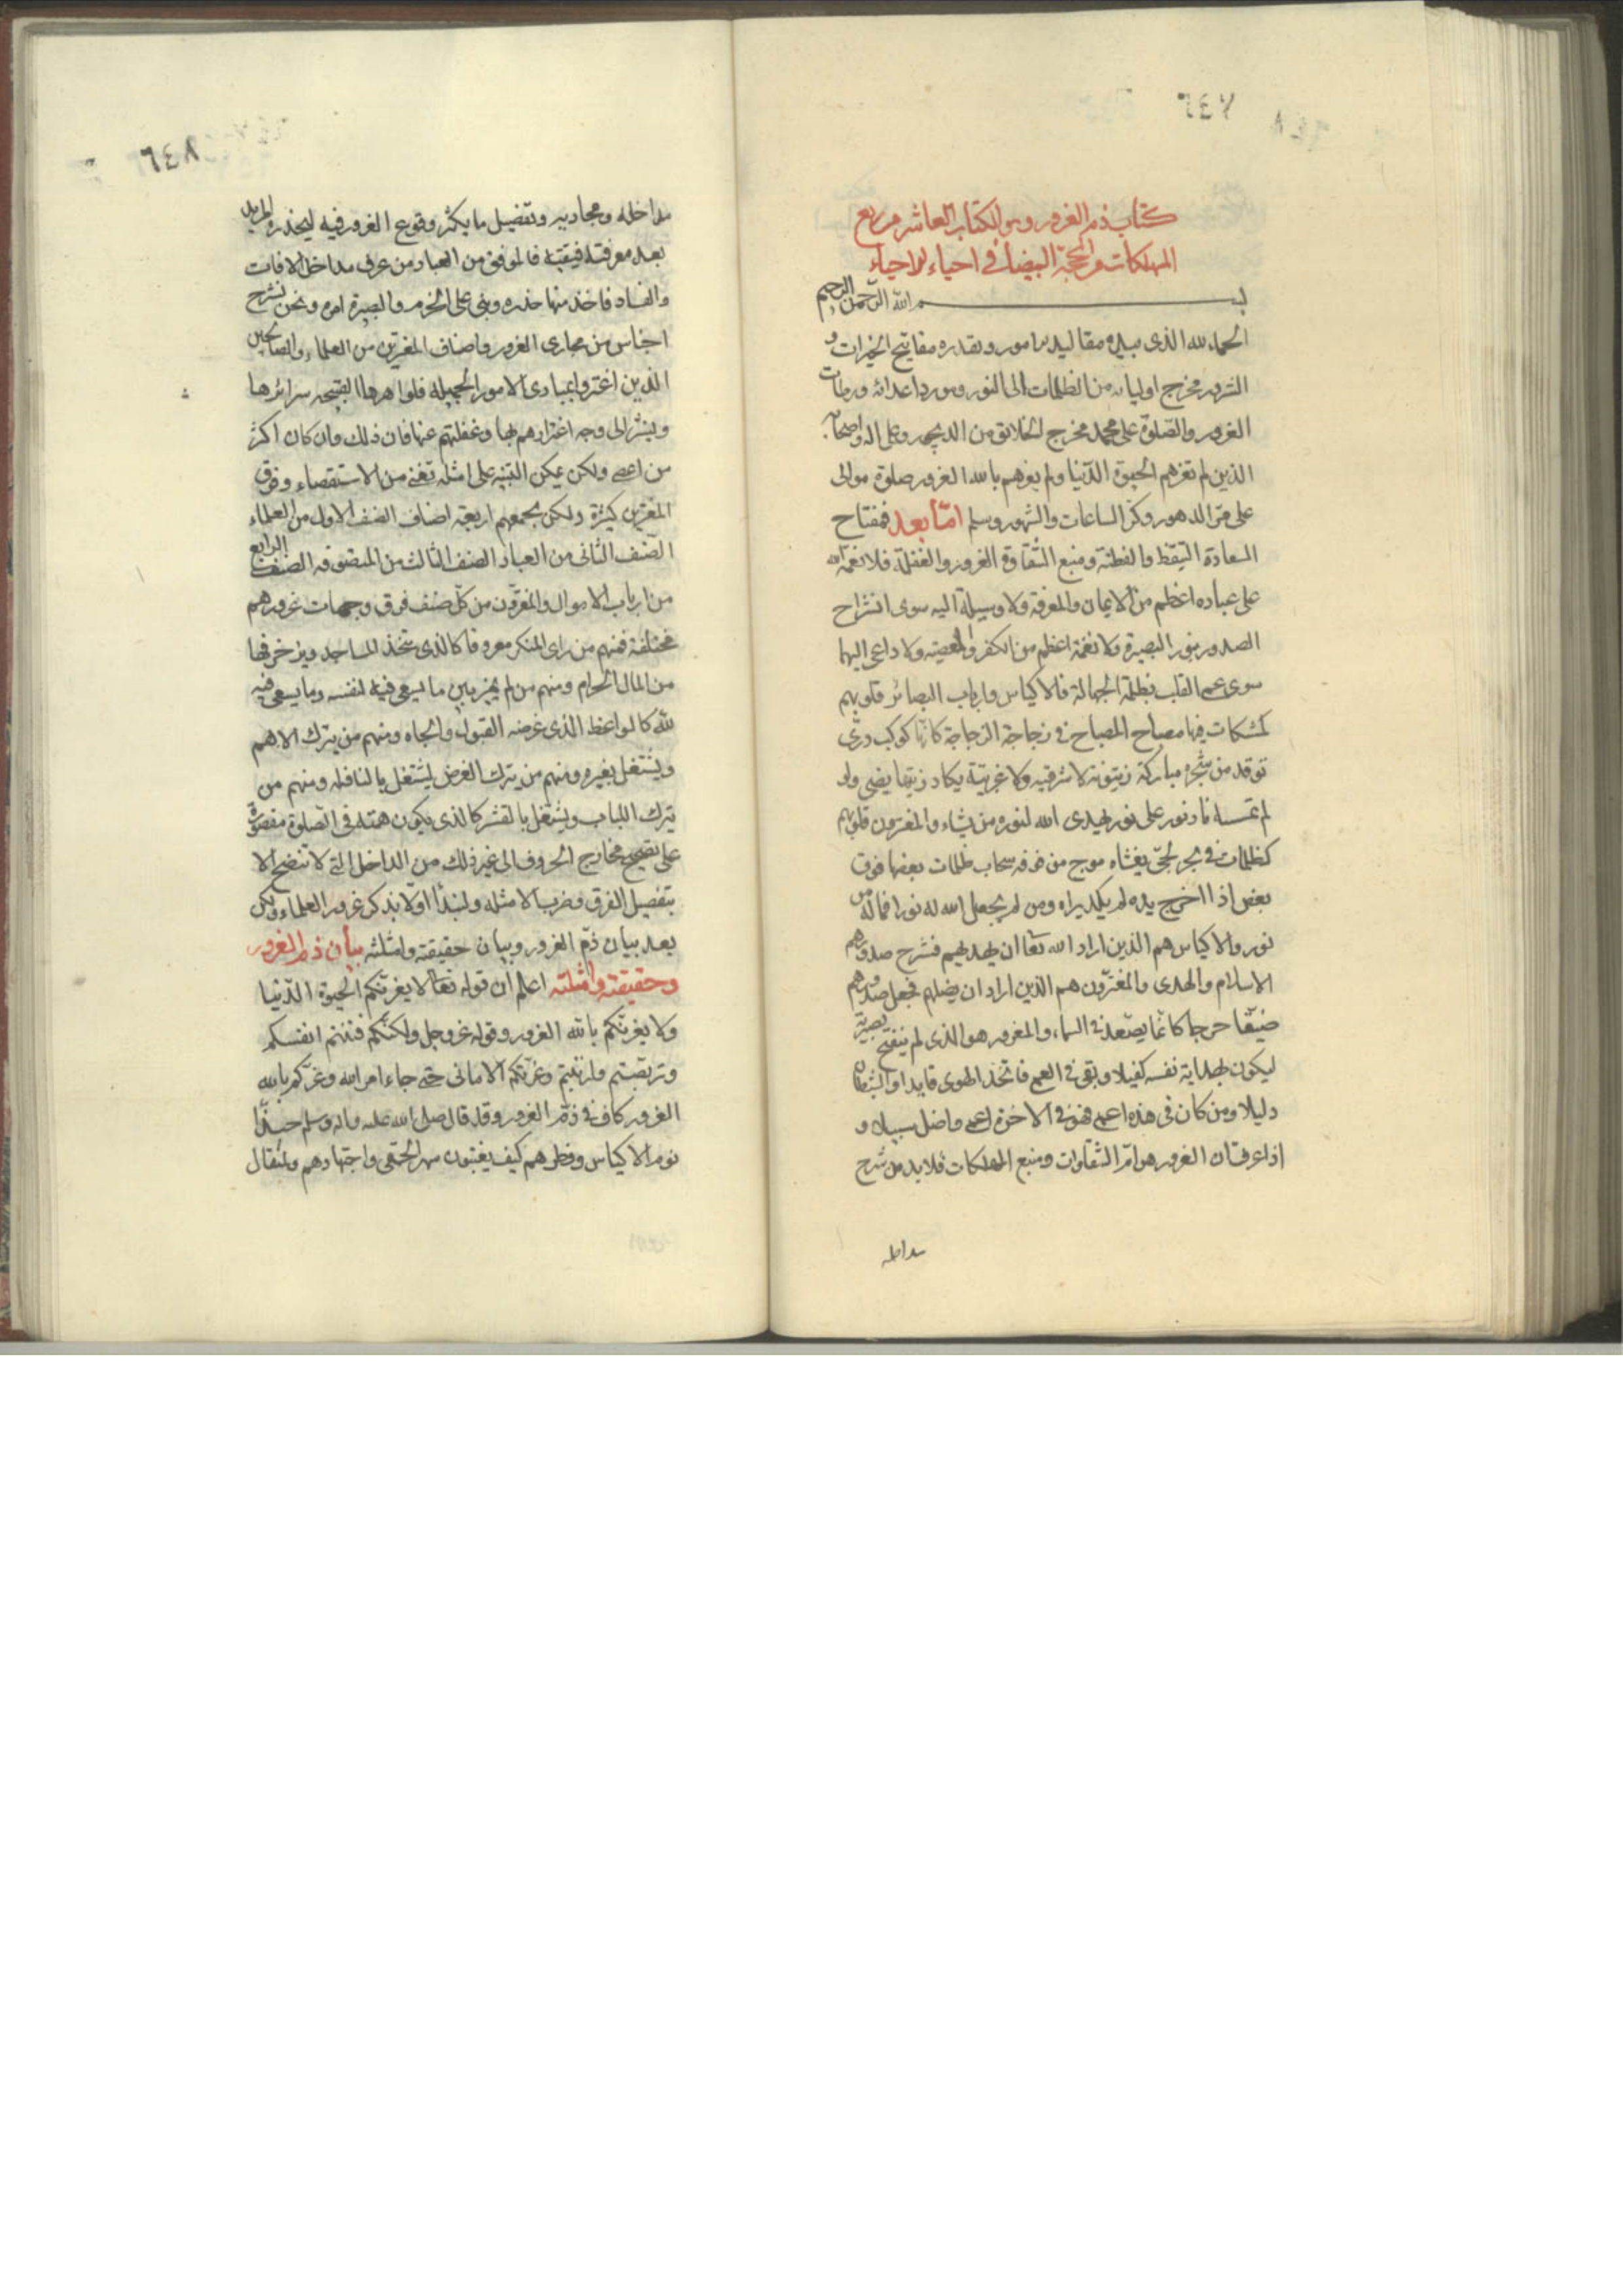 ٦٤٧
كتاب ذم الغرور وهو الكتاب العاشر من ربع
المهلكات من المحجة البيضاء في احياء الاحياء
بسم الله الرحمن الرحيم
الحمد لله الذى بيده مقاليد الامور وبقدره مفاتيح الخيرات و
الشرور مخرج اوليائه من الظلمات الى النور ومورد اعدائه ورطات
الغرور والصلوة على محمد مخرج الخلائق من الديجور وعلى اله واصحابه
الذين لم تغرهم الحيوة الدنيا ولم يغرهم بالله الغرور صلوة موالى
على ممر الدهور وكر الساعات والشهور وسلم امّا بعد فمفتاح
السعادة التيقظ والفطنة ومنبع الشقاوة الغرور والغفلة فلا نعمة لله
على عباده اعظم من الايمان والمعرفة ولا وسيلة اليه سوى انشراح
الصدور بنور البصيرة ولا نقمة اعظم من الكفر والمعصية ولا داعى اليهما
سوى عمى القلب بظلمة الجهالة فالاكياس وارباب البصائر قلوبهم
كمشكات فيها مصباح المصباح فى زجاجة الزجاجة كانها كوكب درّى
توقد من شجره مباركة زيتونة لا شرقيه ولا غربيّة يكاد زيتها يضىء ولو
لم تمسسه نار نور على نور يهدى الله لنوره من يشاء والمغترون قلوبهم
كظلمات فى بحر لجىّ يغشاه موج من فوقه سحاب ظلمات بعضها فوق
بعض اذا اخرج يده لم يكد يراه ومن لم يجعل الله له نورا فماله من
نور والاكياس هم الذين اراد الله تعا ان يهديهم فشرح صدورهم
الاسلام والهدى والمغترّون هم الذين اراد ان يضلهم فجعل صدورهم
ضيّقا حرجا كانما يصّعد فى السماء والمغرور هو الذى لم ينفتح بصيرته
ليكون بهداية نفسه كفيلا وبقى فى العمى فاتخذ الهوى قايدا والشيطان
دليلا ومن كان فى هذه اعمى فهو فى الاخرة اعمى واضل سبيلا و
اذا عرف ان الغرور هو امّ الشقاوات ومنبع المهلكات فلا بد من شرح
مداخله
٦٤٨
مداخله ومجاريه وتفضيل ما يكثر وقوع الغرور فيه ليحذره المريد
بعد معرفته فيتقيه فالموفق من العباد من عرف مداخل الافات
والفساد فاخذ منها حذره وبنى على الحزم والبصيرة امره ونحن نشرح
اجناس من مجارى الغرور واصناف المغترين من العلماء والصالحين
الذين اغتروا بمبادى الامور الجميله ظواهرها القبيحه سرائرها
ونشر الى وجه اغترارهم بها وغفلتهم عنها فان ذلك وان كان اكثر
من احصى ولكن يمكن التنبيه على امثله تغنى من الاستقصاء وفرق
المغترين كثيرة ولكن يجمعهم اربعة اصناف الصنف الاول من العلماء
الصّنف الثانى من العباد الصنف الثالث من المتصوفه الصنف الرابع
من ارباب الاموال والمغترّون من كلّ صنف فرق وجهات غرورهم
مختلفة فمنهم من راى المنكر معروفا كالذى يتخذ المساجد ويزخرفها
من المال الحرام ومنهم من لم يميز بين ما يسعى فيه لنفسه وما يسعى فيه
لله كالواعظ الذى غرضه القبول والجاه ومنهم من يترك الاهم
ويشتغل بغيره ومنهم من يترك الفرض ليشتغل بالنافله ومنهم من
يترك اللباب ويشتغل بالقشر كالذى يكون همته فى الصّلوة مقصورة
على تصحيح مخارج الحروف الى غير ذلك من المداخل التى لا تتضح الا
بتفصيل الفرق وضرب الامثله ولنبدأ اولا بذكر غرور العلماء ولكن
بعد بيان ذمّ الغرور وبيان حقيقته وامثلته بيان ذم الغرور
وحقيقته وامثلته اعلم ان قوله تعالى لا يغرنّكم الحيوة الدّنيا
ولا يغرنّكم بالله الغرور وقوله عزوجل ولكنّكم فتنتم انفسكم
وتربصتم وارتبتم وغرّتكم الامانى حتى جاء امر الله وغرّكم بالله
الغرور كاف فى ذمّ الغرور وقد قال صلى الله عليه واله وسلم حبّذا
نوم الاكياس وفطرهم كيف يغبنون سهر الحمقى واجتهادهم ولمثقال